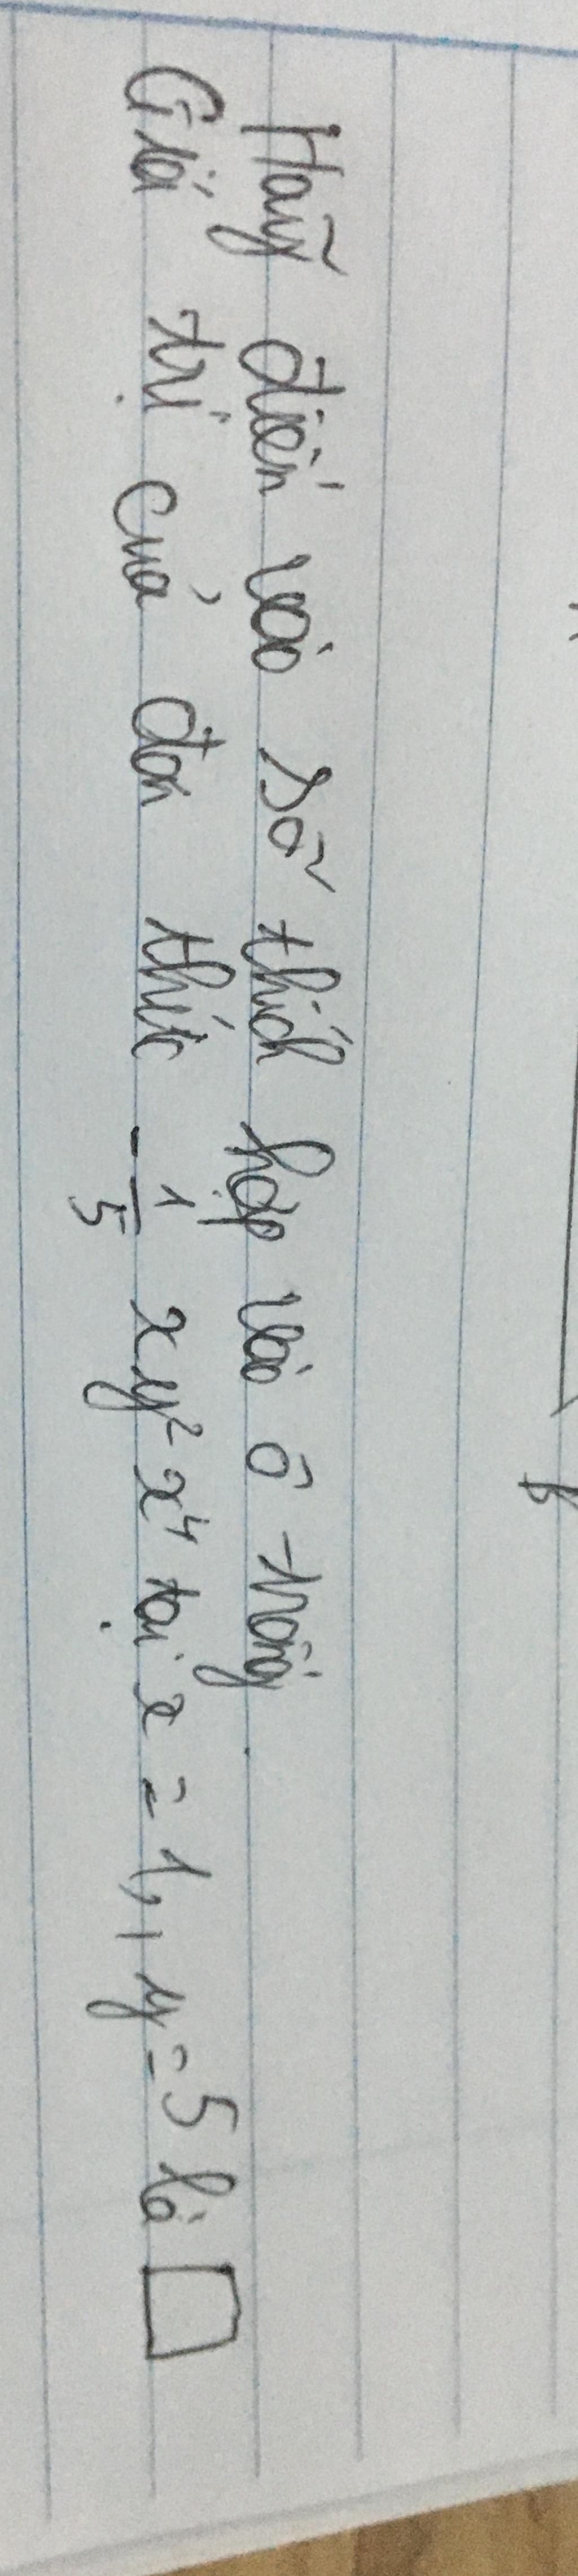 Hãy điền vào số thích hợp vào ô trống
Giá trị của đơn thức -1/5 xy² x⁴ tại x = 1, y = 5 là □